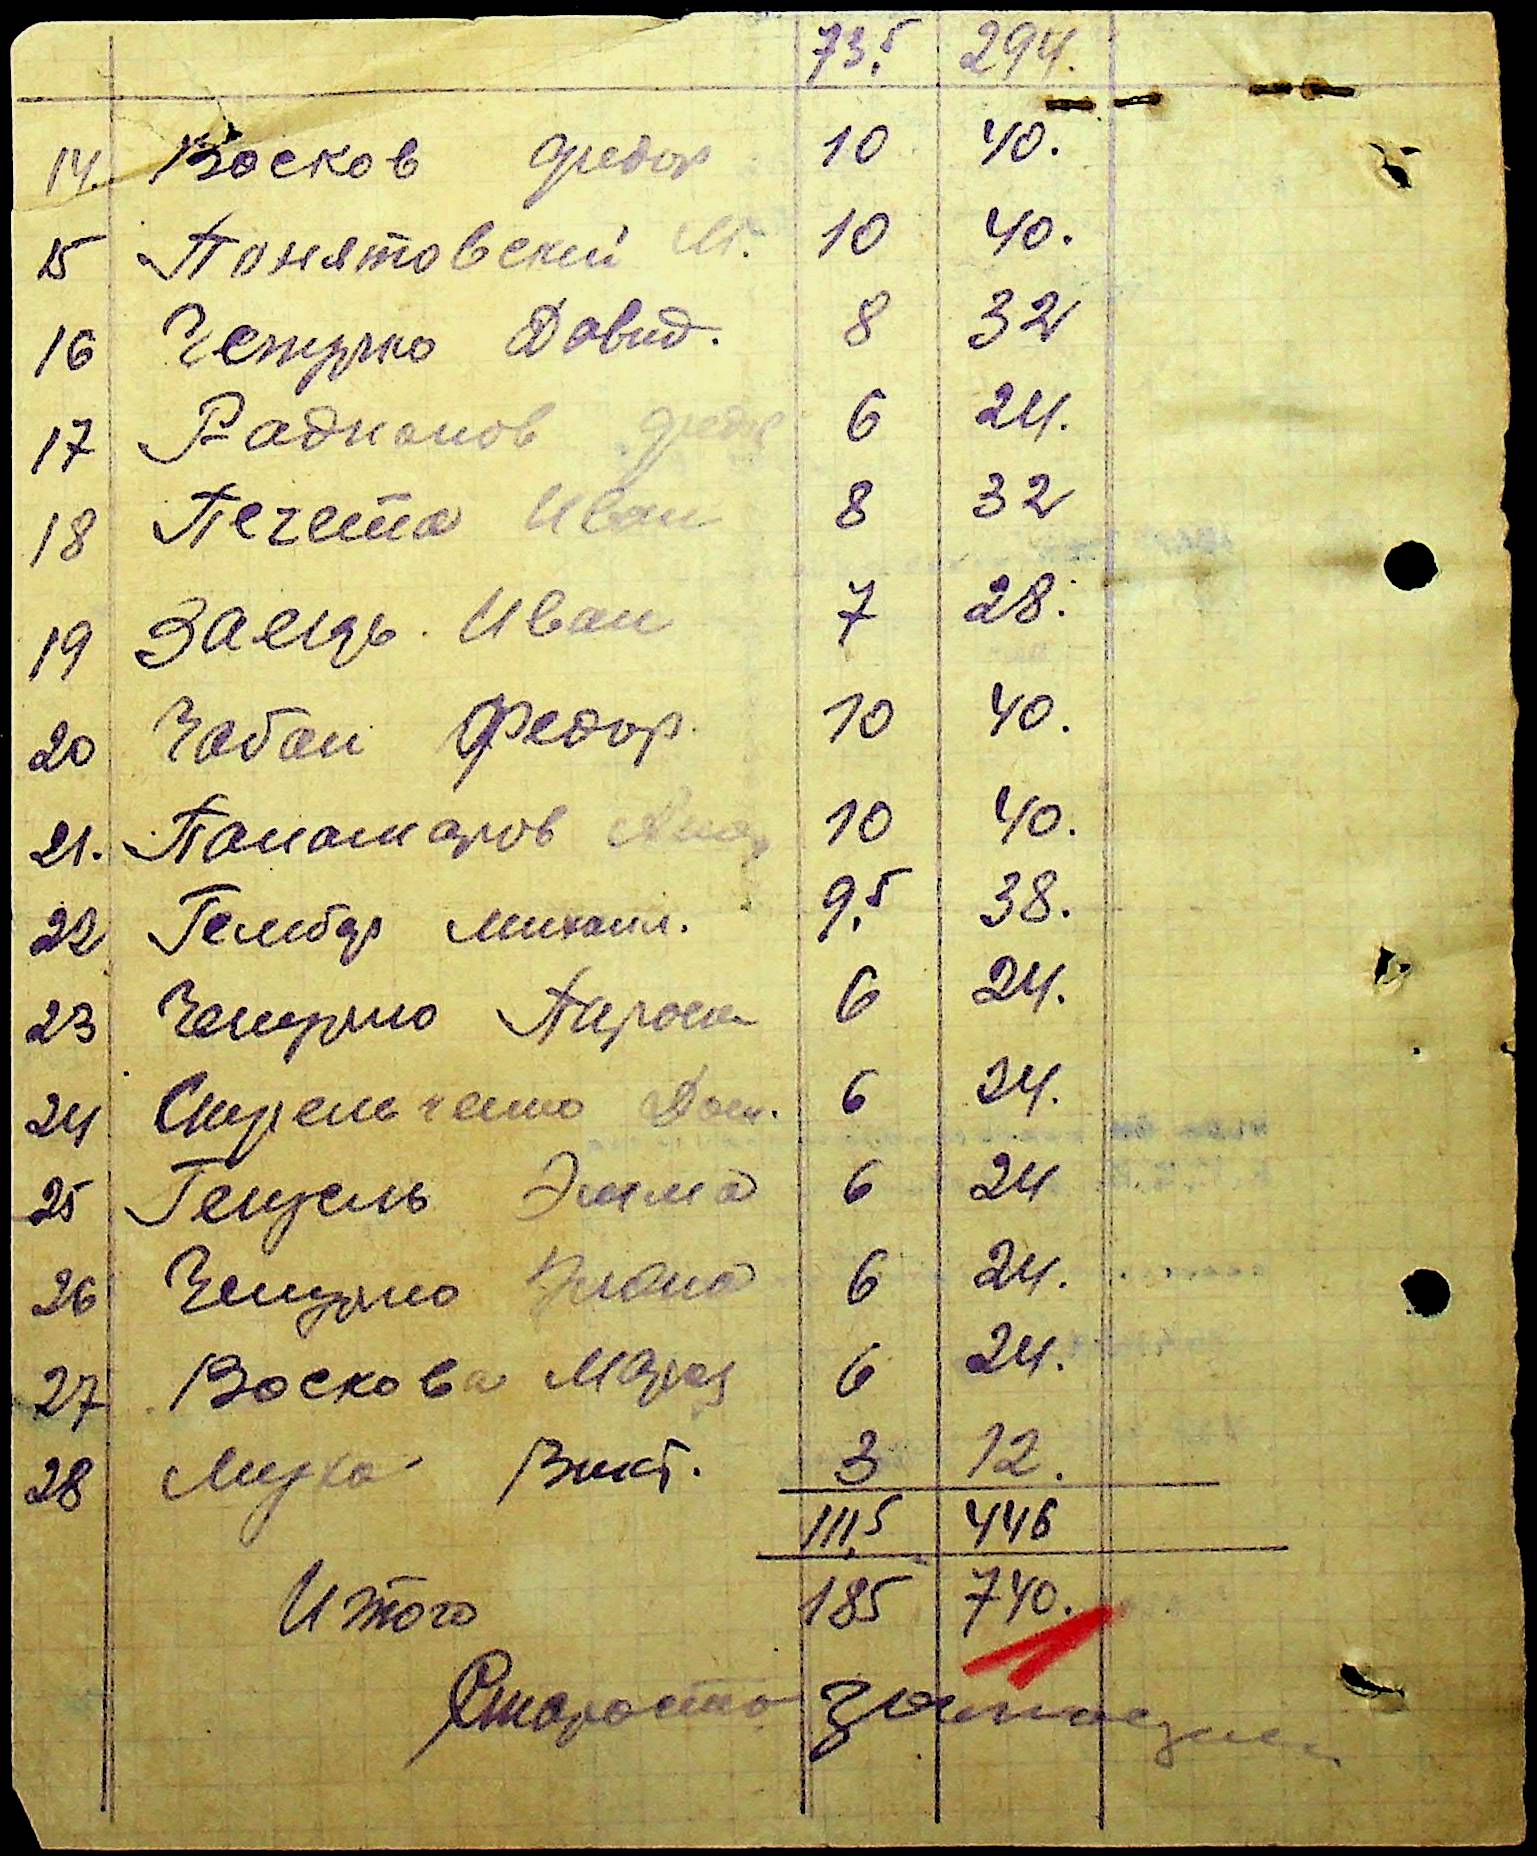 73,5 294.
14. Восков Федор 10 40.
15 Понятовский М. 10 40.
16 Чепурко Давид. 8 32
17 Радионов Федор 6 24.
18 Печета Иван 8 32
19 Заець. Иван 7 28.
20 Чабан Федор. 10 40.
21. Панамаров 10 40.
22 Гембар Михаил. 9,5 38.
23 Чепурко 6 24.
24 Стрельченко 6 24.
25 Генцель Эмма 6 24
26 Чепурко 6 24.
27 Воскова Мария 6 24.
28 Викт. 3 12.
111,5 446
Итого 185 740.
Староста